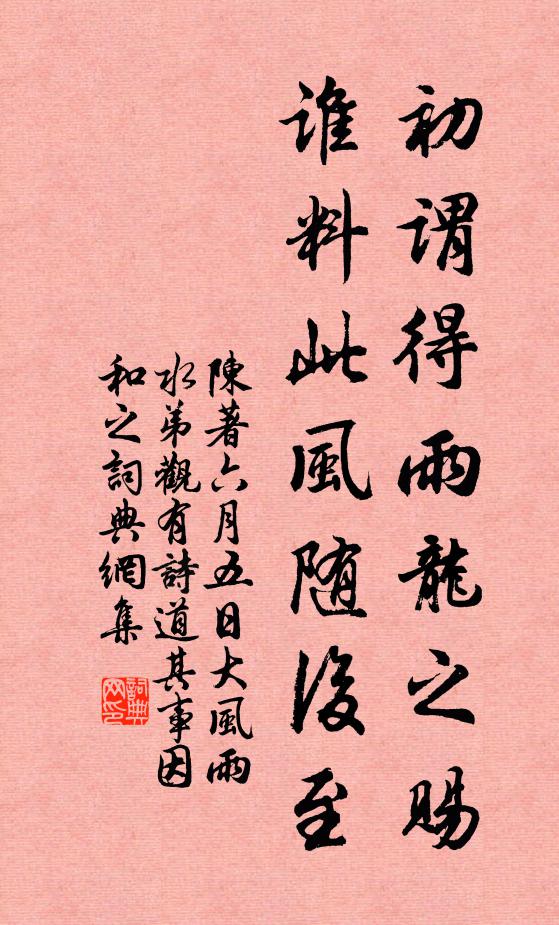 初謂得雨龍之賜
誰料此風随後至
陳著六月五日大風雨
水弟觀有詩道其事因
和之詞典網集
詞典
网印